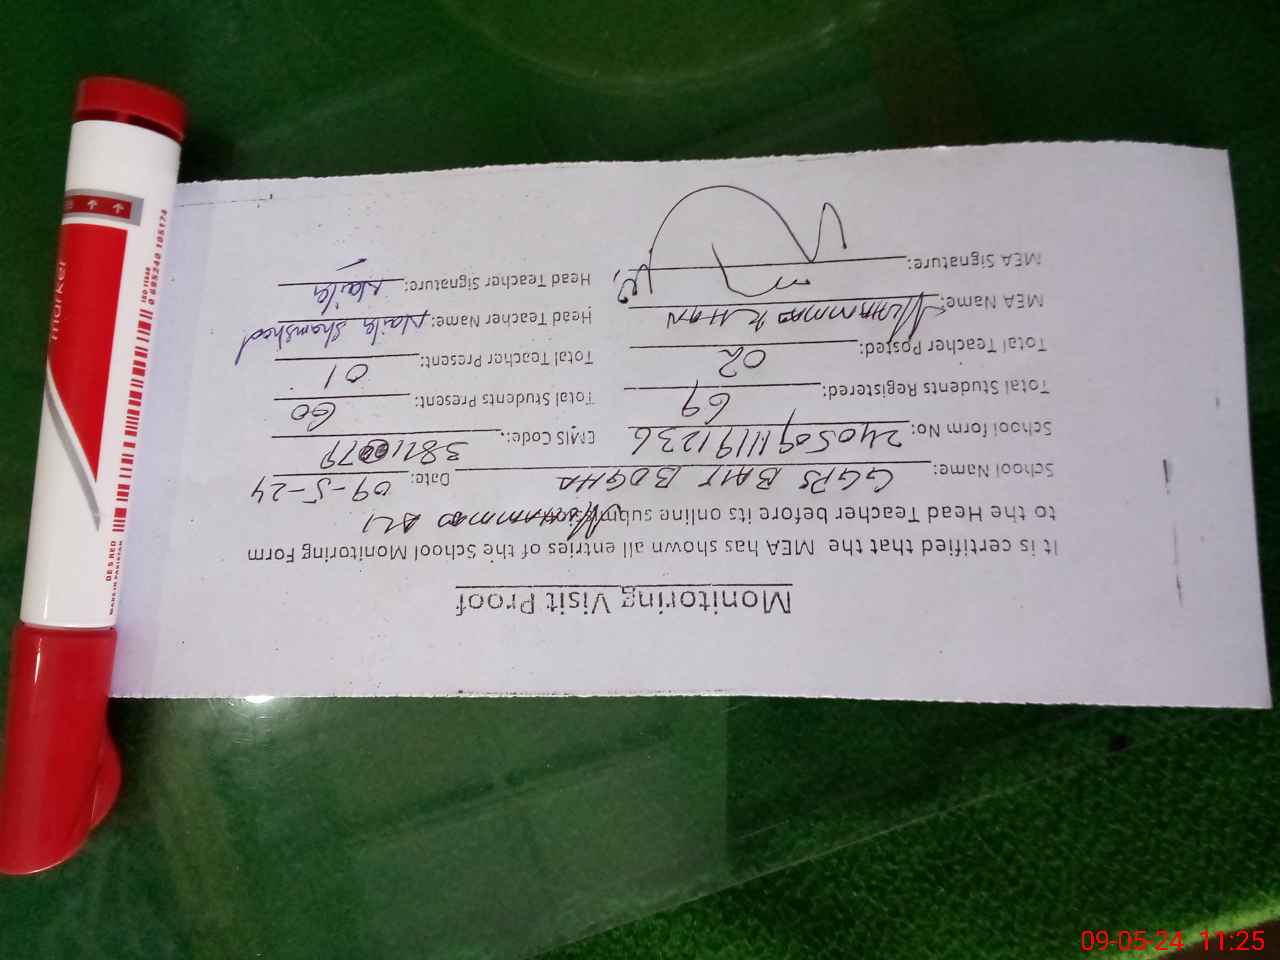 Monitoring Visit Proof
It is certified that the MEA has shown all entries of the School Monitoring Form
to the Head Teacher before its online submission MUHAMMAD ALI
School Name: GGPS BAIT BOGHA Date: 09-5-24
School form No: 240509111191236 EMIS Code: 38110079
Total Students Registered: 69 Total Students Present: 60
Total Teacher Posted: 02 Total Teacher Present: 01
MEA Name: MUHAMMAD KHAN Head Teacher Name: Naila Shamshad
MEA Signature: Head Teacher Signature: Naila
marker
ISO 9001
0 695240 105174
DES.RED
MADE IN PAKISTAN
09-05-24 11:25